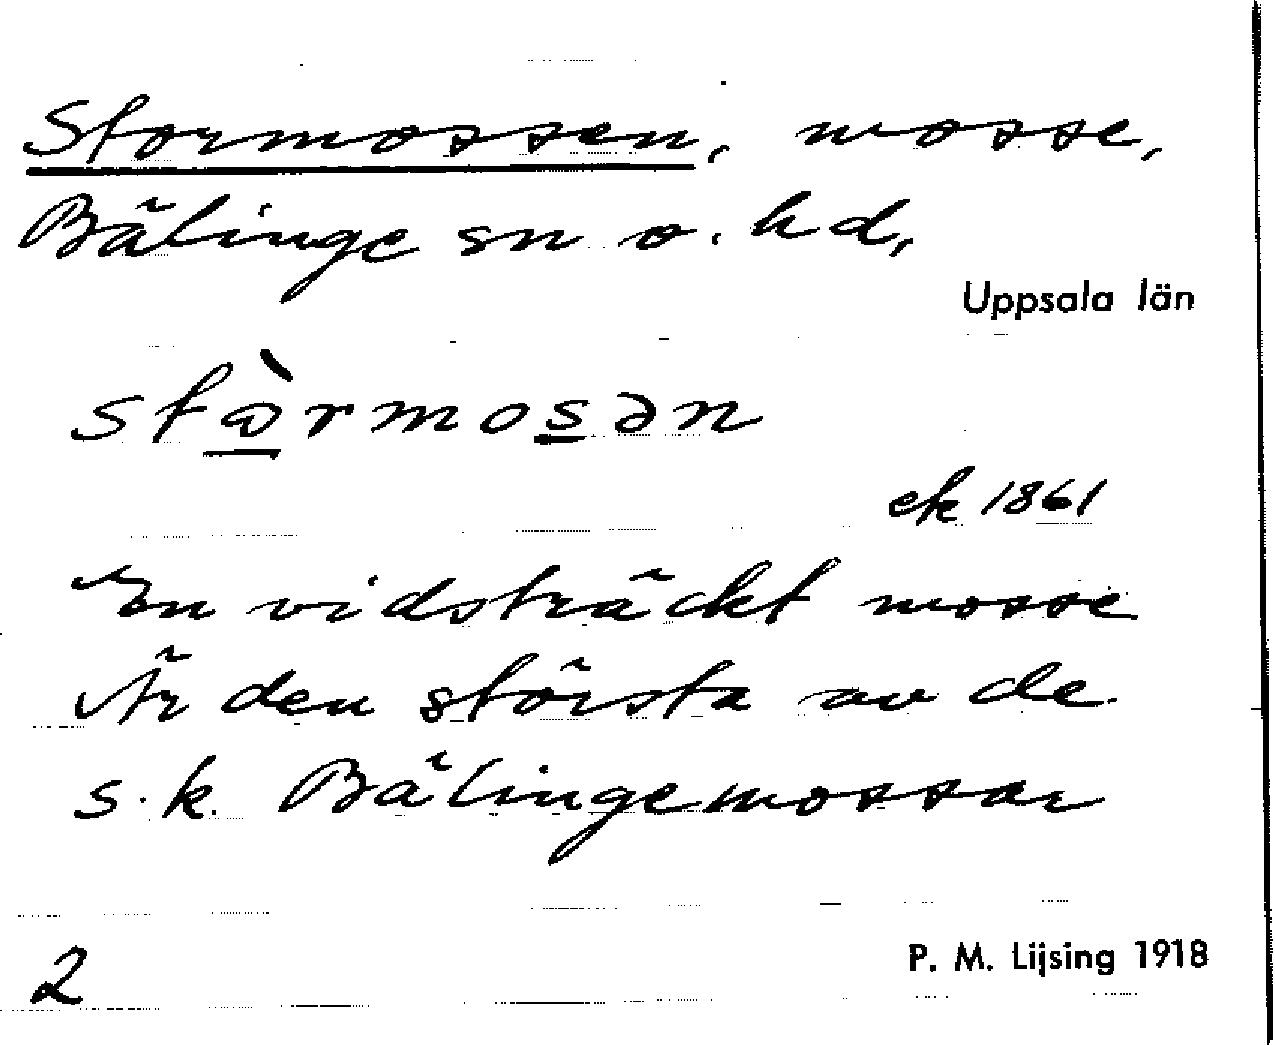 Stormossen, mosse,
Bälinge sn o. hd,
Uppsala län
stὼrmosən
ek 1861
En vidsträckt mosse
Är den största av de
s.k. Bälingemossar
2
P. M. Lijsing 1918